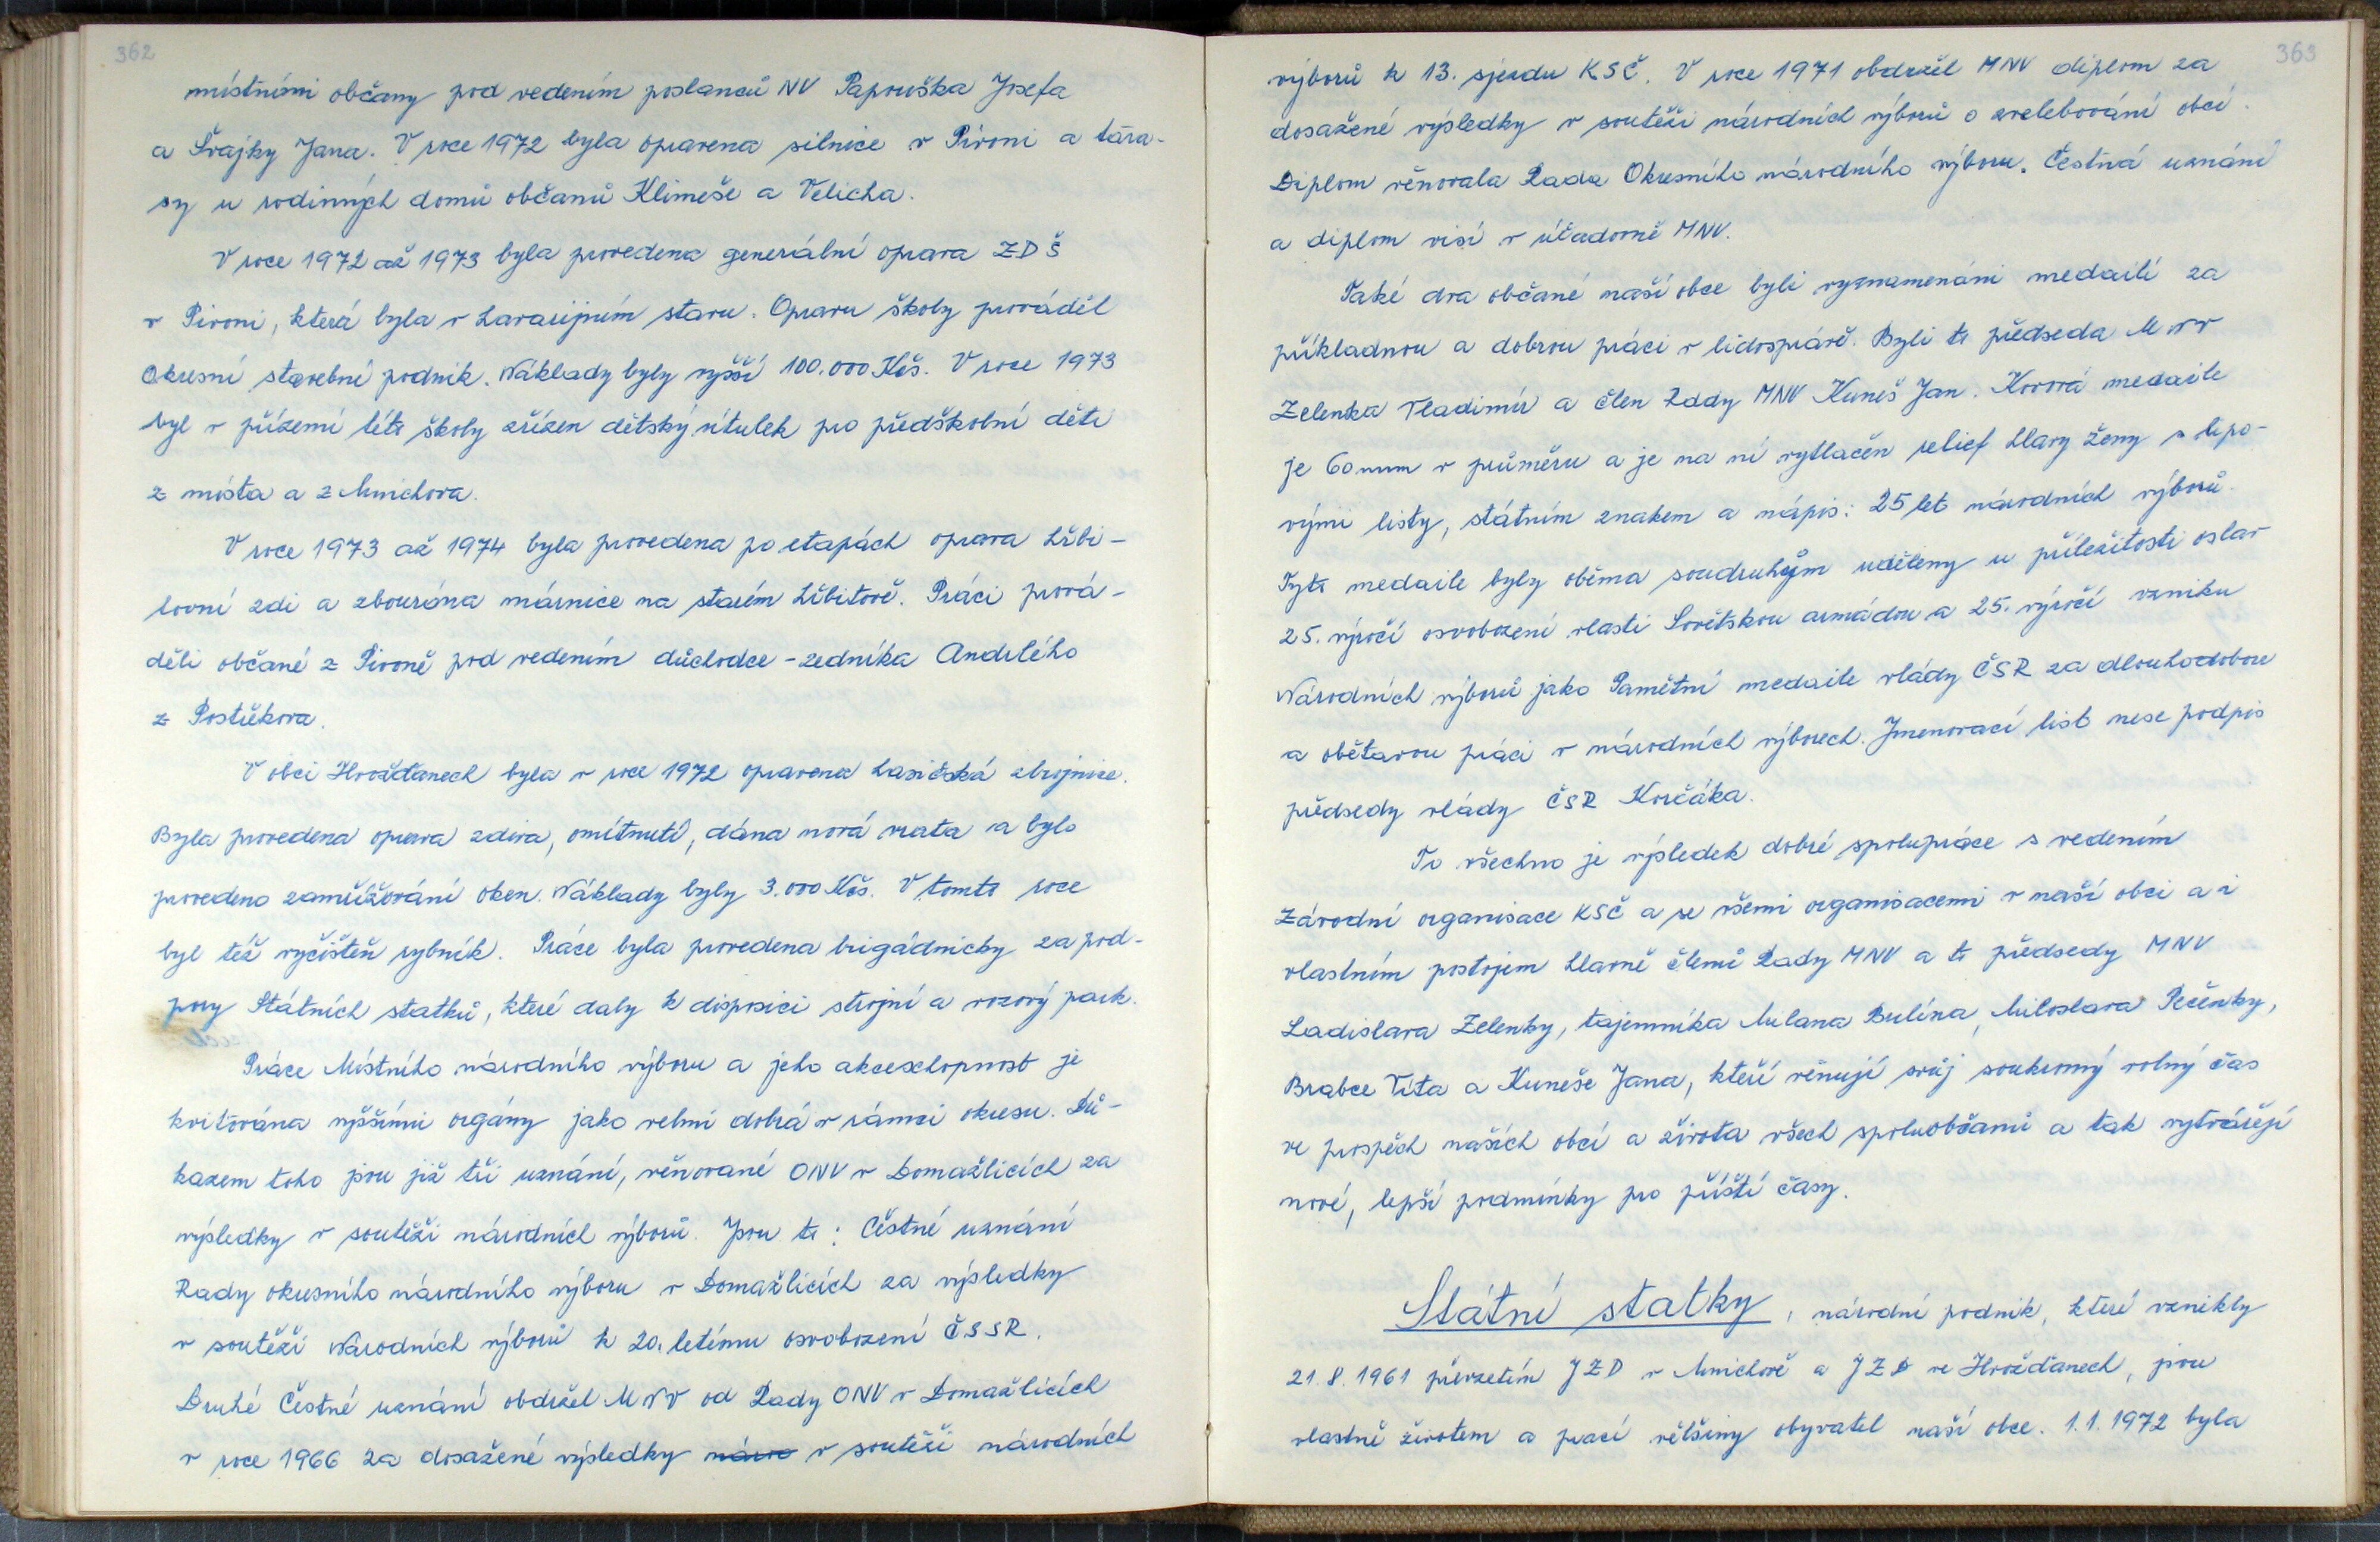 362
místními občany pod vedením poslanců NV Papouška Josefa
a Švajky Jana. V roce 1972 byla opravena silnice v Pivoni a tara-
sy u rodinných domů občanů Klimeše a Velicha.
V roce 1972 až 1973 byla provedena generální oprava ZDŠ
v Pivoni, která byla v havarijním stavu. Opravu školy prováděl
Okresní stavební podnik. Náklady byly vyšší 100.000 Kčs. V roce 1973
byl v přízemí této školy zřízen dětský útulek pro předškolní děti
z místa a z Mnichova.
V roce 1973 až 1974 byla provedena po etapách oprava hřbi-
tovní zdi a zbourána márnice na starém hřbitově. Práci prová-
děli občané z Pivoně pod vedením důchodce - zedníka Andrlého
z Postřekova.
V obci Hvožďanech byla v roce 1972 opravena hasičská zbrojnice.
Byla provedena oprava zdiva, omítnutí, dána nová vrata a bylo
provedeno zamřížování oken. Náklady byly 3.000 Kčs. V tomto roce
byl též vyčištěn rybník. Práce byla provedena brigádnicky za pod-
pory Státních statků, které daly k disposici strojní a vozový park.
Práce Místního národního výboru a jeho akceschopnost je
kvitována vyššími orgány jako velmi dobrá v rámci okresu. Dů-
kazem toho jsou již tři uznání, věnované ONV v Domažlicích za
výsledky v soutěži národních výborů. Jsou to: Čestné uznání
Rady okresního národního výboru v Domažlicích za výsledky
v soutěži Národních výborů k 20. letému osvobození ČSSR.
Druhé Čestné uznání obdržel MNV od Rady ONV v Domažlicích
v roce 1966 za dosažené výsledky náro v soutěži národních
363
výborů k 13. sjezdu KSČ. V roce 1971 obdržel MNV diplom za
dosažené výsledky v soutěži národních výborů o zvelebování obcí.
Diplom věnovala Rada Okresního národního výboru. Čestná uznání
a diplom visí v úřadovně MNV.
Také dva občané naší obce byli vyznamenáni medailí za
příkladnou a dobrou práci v lidosprávě. Byli to předseda MNV
Zelenka Vladimír a člen Rady MNV Kuneš Jan. Kovová medaile
je 60 mm v průměru a je na ní vytlačen relief hlavy ženy s lipo-
vými listy, státním znakem a nápis: 25 let národních výborů.
Tyto medaile byly oběma soudruhům uděleny u příležitosti oslav
25. výročí osvobození vlasti Sovětskou armádou a 25. výročí vzniku
Národních výborů jako Pamětní medaile vlády ČSR za dlouhodobou
a obětavou práci v národních výborech. Jmenovací list nese podpis
předsedy vlády ČSR Korčáka.
To všechno je výsledek dobré spolupráce s vedením
Závodní organisace KSČ a se všemi organisacemi v naší obci a i
vlastním postojem hlavně členů Rady MNV a to předsedy MNV
Ladislava Zelenky, tajemníka Milana Bulína, Miloslava Pečenky,
Brabce Víta a Kuneše Jana, kteří věnují svůj soukromý volný čas
ve prospěch našich obcí a života všech spoluobčanů a tak vytvářejí
nové, lepší podmínky pro příští časy.
Státní statky, národní podnik, které vznikly
21.8.1961 převzetím JZD v Mnichově a JZD ve Hvožďanech, jsou
vlastně životem a prací většiny obyvatel naší obce. 1.1.1972 byla